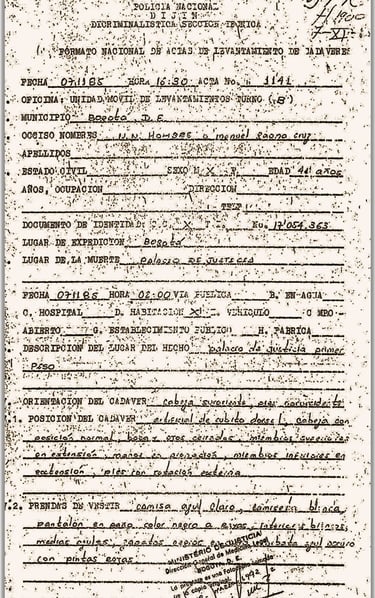 POLICIA NACIONAL
D I J I N
DICRIMINALISTICA SECCION TECNICA
FORMATO NACIONAL DE ACTAS DE LEVANTAMIENTO DE CADAVERES
FECHA 071185 HORA 16:30 ACTA No. 1141
OFICINA: UNIDAD MOVIL DE LEVANTAMIENTOS TURNO (B)
MUNICIPIO Bogotá D.E.
OCCISO NOMBRES N.N. HOMBRE o manuel cruz
APELLIDOS
ESTADO CIVIL SEXO M X F. EDAD años
AÑOS, OCUPACION DIRECCION
TELF
DOCUMENTO DE IDENTIDAD C.C. X No. 17'054.365
LUGAR DE EXPEDICION Bogotá
LUGAR DE LA MUERTE PALACIO DE JUSTICIA
FECHA 071185 HORA 02:00 VIA PUBLICA B. EN AGUA
C. HOSPITAL D. HABITACION XI E. VEHICULO CAMPO
ABIERTO G. ESTABLECIMIENTO PUBLICO H. FABRICA
DESCRIPCION DEL LUGAR DEL HECHO palacio de justicia primer
PISO
ORIENTACION DEL CADAVER cabeza suroriente, pies noroccidente
1. POSICION DEL CADAVER artificial de cubito dorsal, cabeza con
posición normal, boca y ojos cerrados, miembros superiores
en extensión, manos en pronación, miembros inferiores en
extensión, pies con rotación externa
1.2. PRENDAS DE VESTIR camisa azul claro, camiseta blanca,
pantalón en paño color negro a rayas, interiores blancos,
medias azules, zapatos corbata azul oscuro
con pintas rojas.
MINISTERIO DE JUSTICIA
Dirección General de Medicina Legal
BOGOTA, D. E.
1992